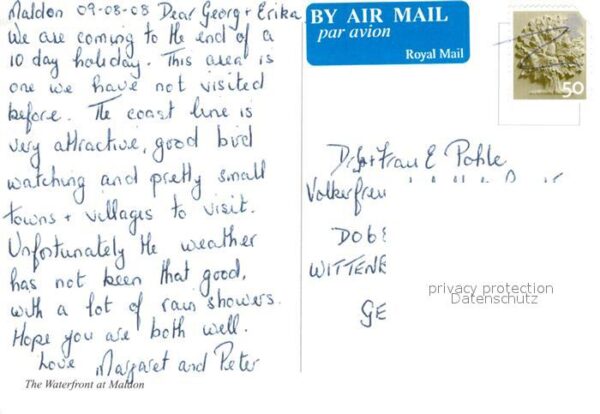 Maldon 09-08-08 Dear Georg + Erika
We are coming to the end of a
10 day holiday. This area is
one we have not visited
before. The coast line is
very attractive, good bird
watching and pretty small
towns + villages to visit.
Unfortunately the weather
has not been that good,
with a lot of rain showers.
Hope you are both well.
Love Margaret and Peter
The Waterfront at Maldon
BY AIR MAIL
par avion
Royal Mail
50
Frau E Pohle
privacy protection
Datenschutz